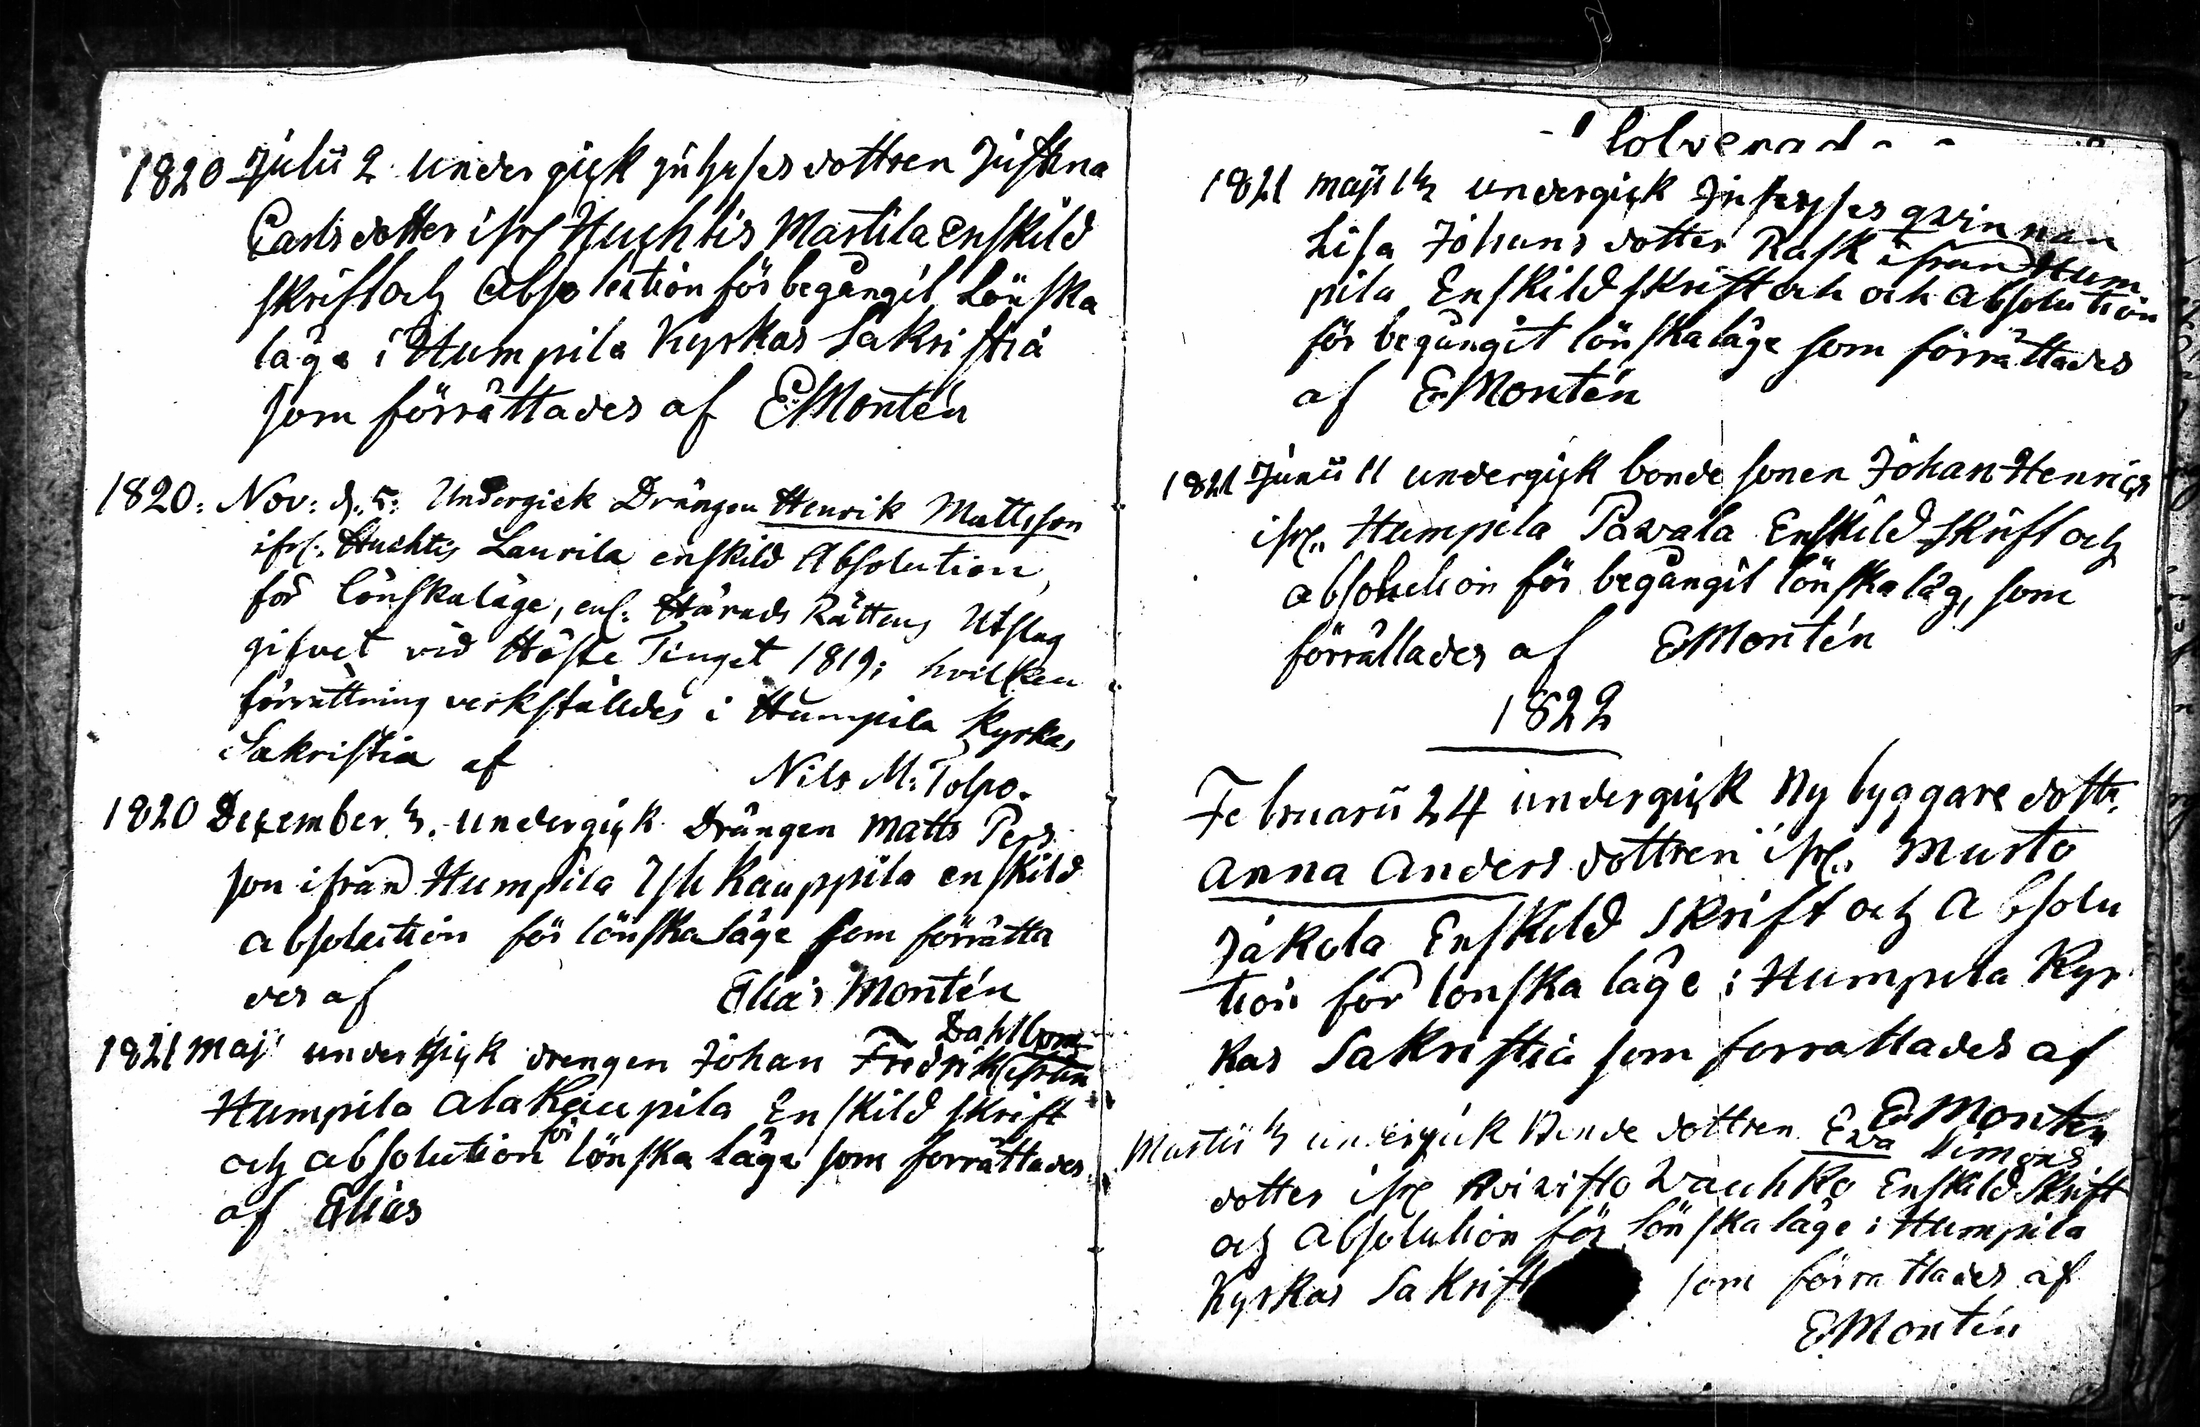 1820 Julii 2 undergick inhyses dottren Justina
Carls dotter ifrå Huchtis Martila enskild
skrift och absolution för begångit Lönska
läge i Humpila Kyrkas Sakristia
som förrättades af EMontén
1820: Nov: d. 5: Undergick Drängen Henrik Mattsson
ifr: Huchtis Laurila enskild Absolution,
för Lönskaläge, enl: Härads Rättens Utslag
gifvet vid Höste Tinget 1819; hvilken
förrättning verkställdes i Humpila Kyrkas
Sakristia af
Nils M: Tolpo.
1820 December 3. undergick Drängen Matts Pers
son ifrån Humpila Yli Kauppila enskild
absolution för lönskaläge som förrätta
des af Elias Montén
Dahlbom
1821 Maji undergick drengen Johan Fredrik ifrån
Humpila Ala Kaupila Enskild skrift
för
och absolution lönska läge som förrättades
af Elias
1821 Maji 13 undergick Inhyses qvinnan
Lisa Johans dotter Rask ifrån Hum
pila Enskild skrift och och absolution
för begångit lönskaläge som förrättades
af EMontén
1821 Junii 11 undergick bonde sonen Johan Henrics
ifr. Humpila Pawala Enskild skrift och
absolution för begångit lönska läg, som
förrättades af EMontén
1822
Februarii 24 undergick Nybyggare dottr.
Anna Anders dottren ifr. Murto
Jakola Enskild skrift och Absolu
tion för lönska läge i Humpila Kyr
kas Sakristia som förrättades af
EMontén
Martii 3 undergick Bonde dottren Eva Simons
dotter ifr Wauhko Enskild Skrift
och Absolution för Lönska läge i Humpila
Kyrkas Sakrist som förrättades af
EMontén